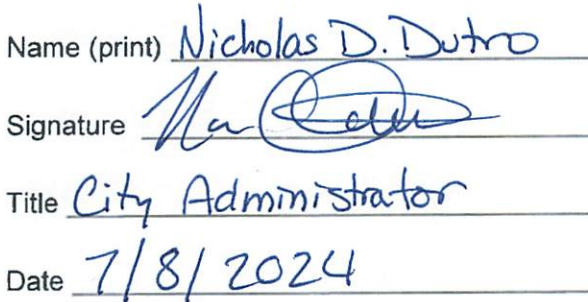 Name (print) Nicholas D. Dutro
Signature
Title City Administrator
Date 7/8/2024